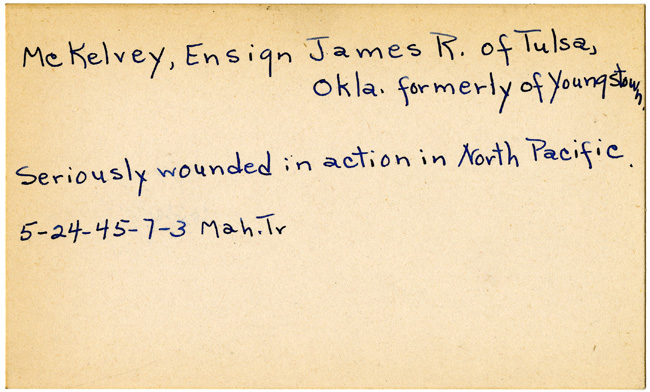 McKelvey, Ensign James R. of Tulsa,
Okla. formerly of Youngstown.
Seriously wounded in action in North Pacific.
5-24-45-7-3 Mah.Tr